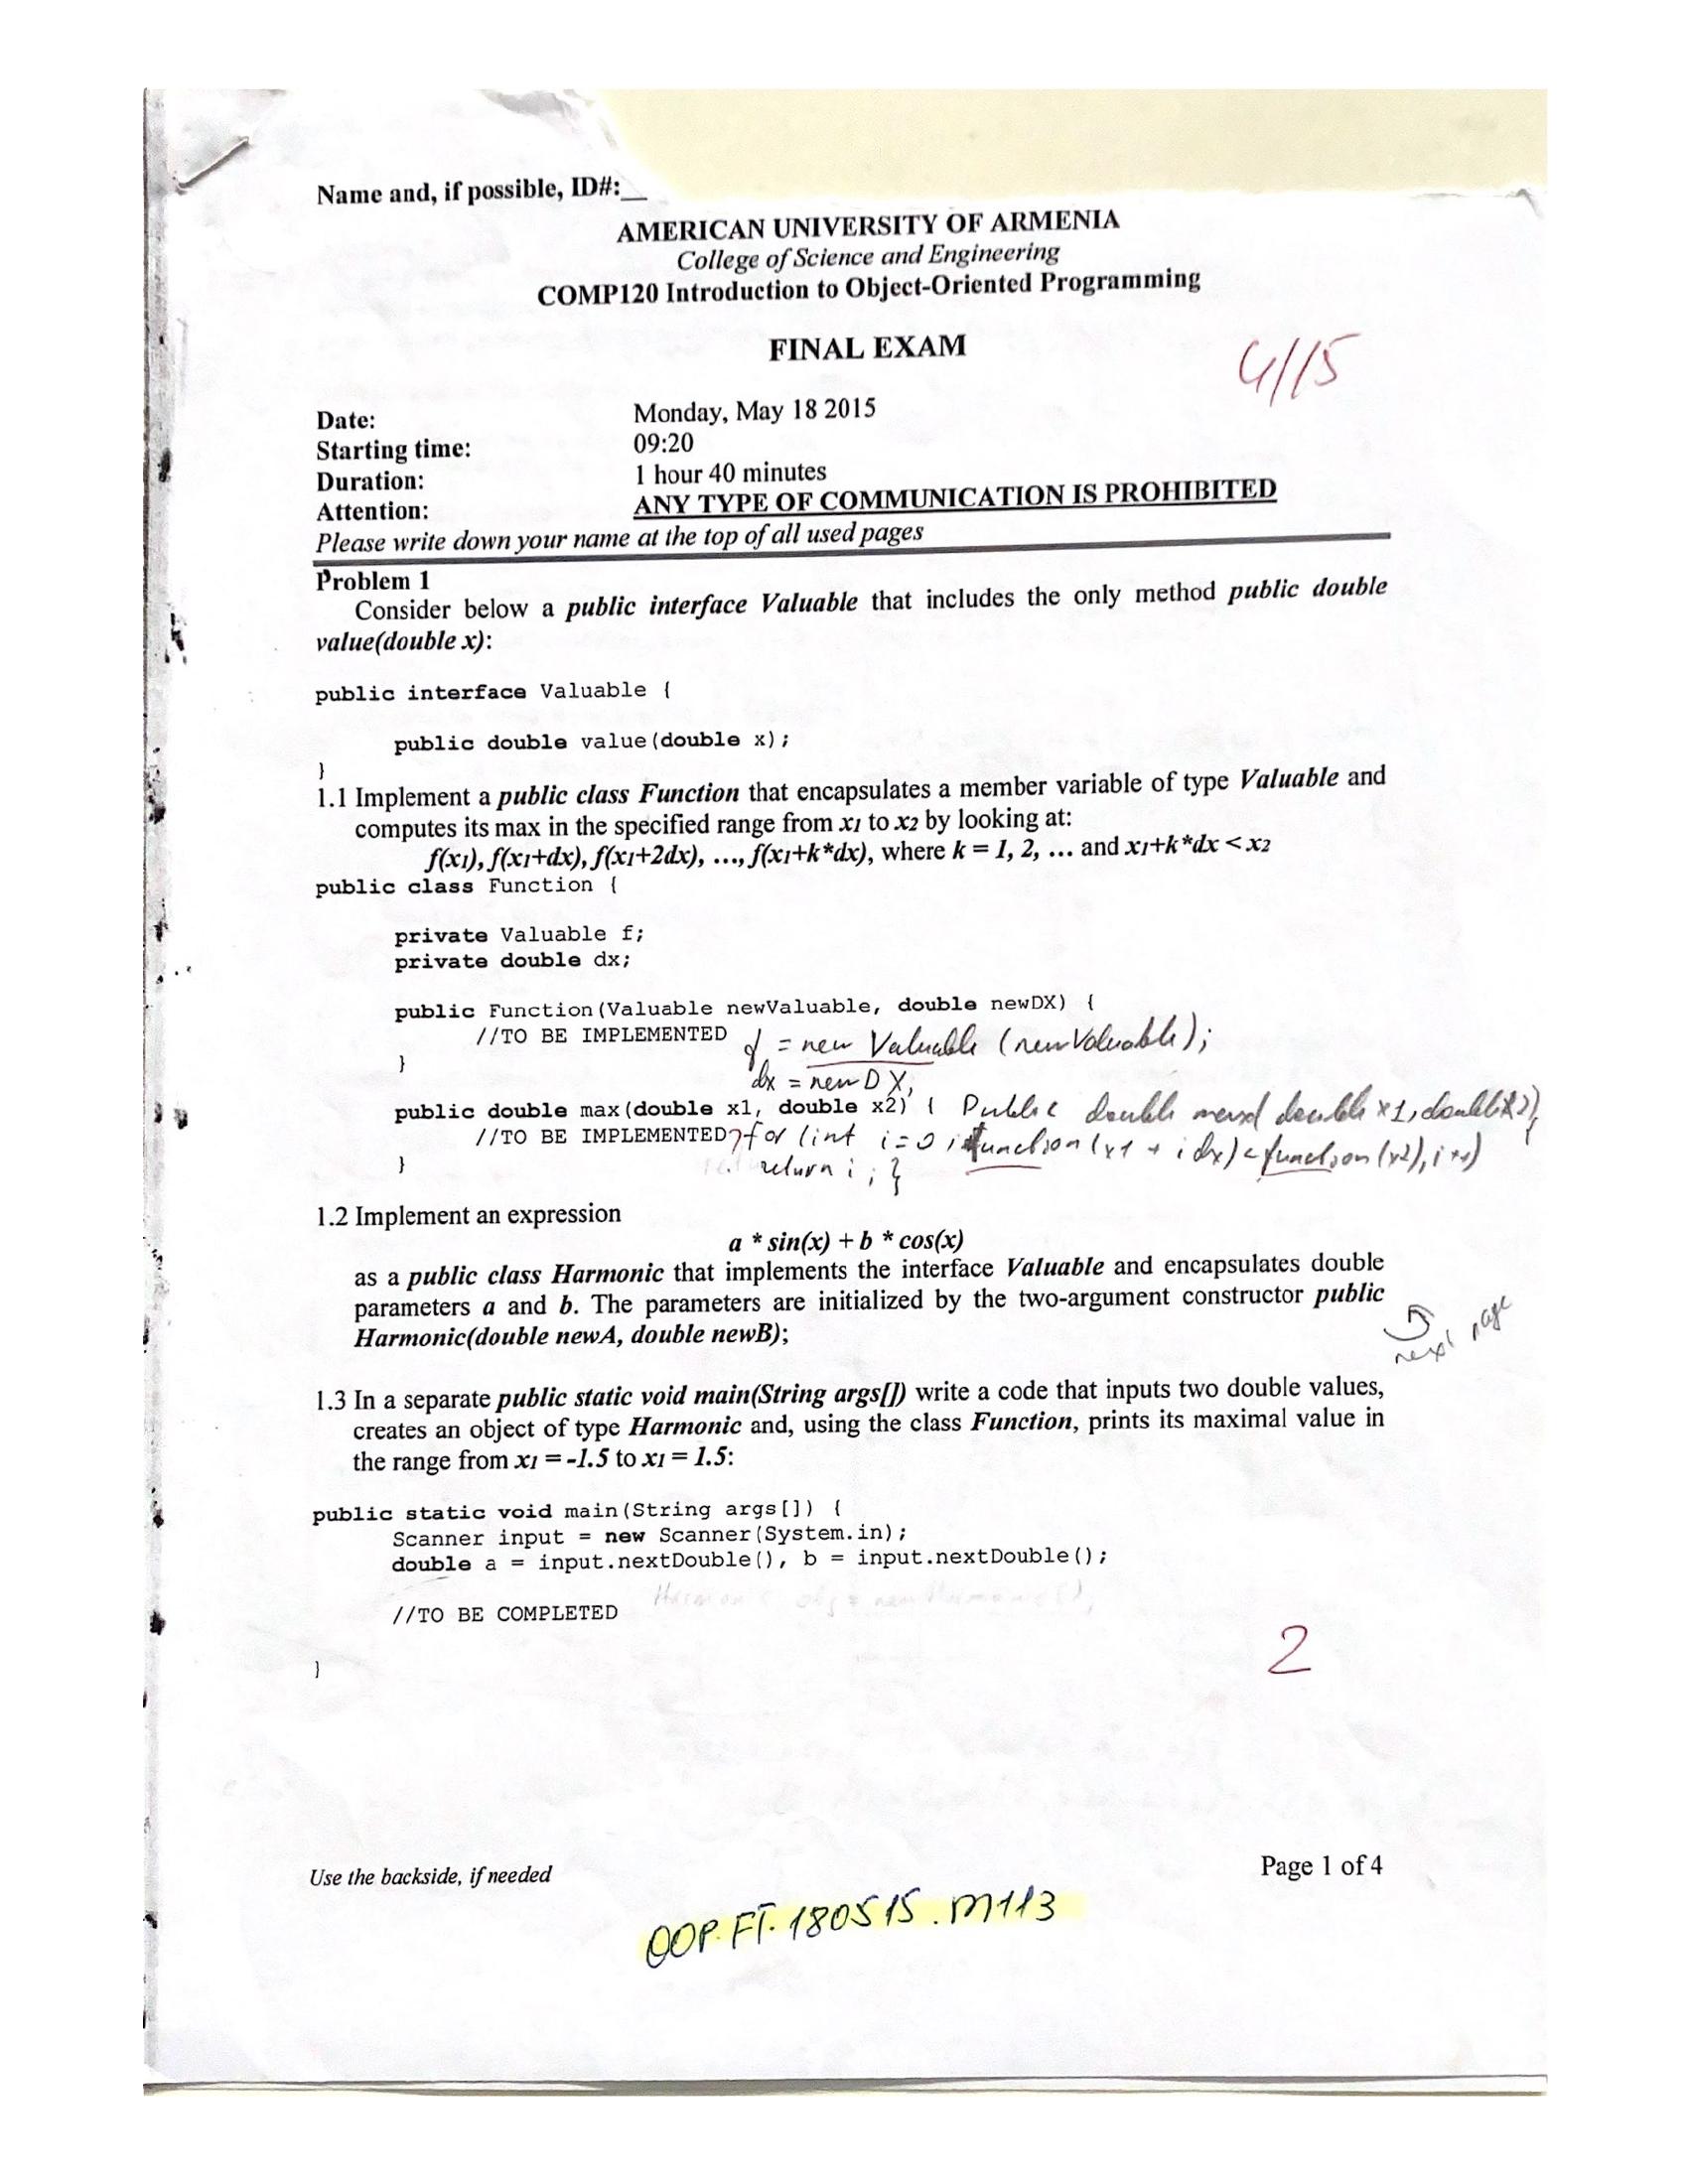 Name and, if possible, ID#:__
AMERICAN UNIVERSITY OF ARMENIA
College of Science and Engineering
COMP120 Introduction to Object-Oriented Programming
FINAL EXAM
4/15
Date: Monday, May 18 2015
Starting time: 09:20
Duration: 1 hour 40 minutes
Attention: ANY TYPE OF COMMUNICATION IS PROHIBITED
Please write down your name at the top of all used pages
Problem 1
Consider below a public interface Valuable that includes the only method public double
value(double x):
public interface Valuable {
public double value(double x);
}
1.1 Implement a public class Function that encapsulates a member variable of type Valuable and
computes its max in the specified range from x1 to x2 by looking at:
f(x1), f(x1+dx), f(x1+2dx), ..., f(x1+k*dx), where k = 1, 2, ... and x1+k*dx < x2
public class Function {
private Valuable f;
private double dx;
public Function(Valuable newValuable, double newDX) {
//TO BE IMPLEMENTED f = new Valuable (newValuable);
}
dx = newDX;
public double max(double x1, double x2) { Public double double x1, double x2) {
//TO BE IMPLEMENTED for (int i=0; function (x1 + i dx) < function (x2), i++)
} return i; }
1.2 Implement an expression
a * sin(x) + b * cos(x)
as a public class Harmonic that implements the interface Valuable and encapsulates double
parameters a and b. The parameters are initialized by the two-argument constructor public
Harmonic(double newA, double newB);
next page
1.3 In a separate public static void main(String args[]) write a code that inputs two double values,
creates an object of type Harmonic and, using the class Function, prints its maximal value in
the range from x1 = -1.5 to x1 = 1.5:
public static void main(String args[]) {
Scanner input = new Scanner(System.in);
double a = input.nextDouble(), b = input.nextDouble();
Harmonic obj = new Harmonic(),
//TO BE COMPLETED
2
}
Use the backside, if needed Page 1 of 4
OOP.FT.180515.M113